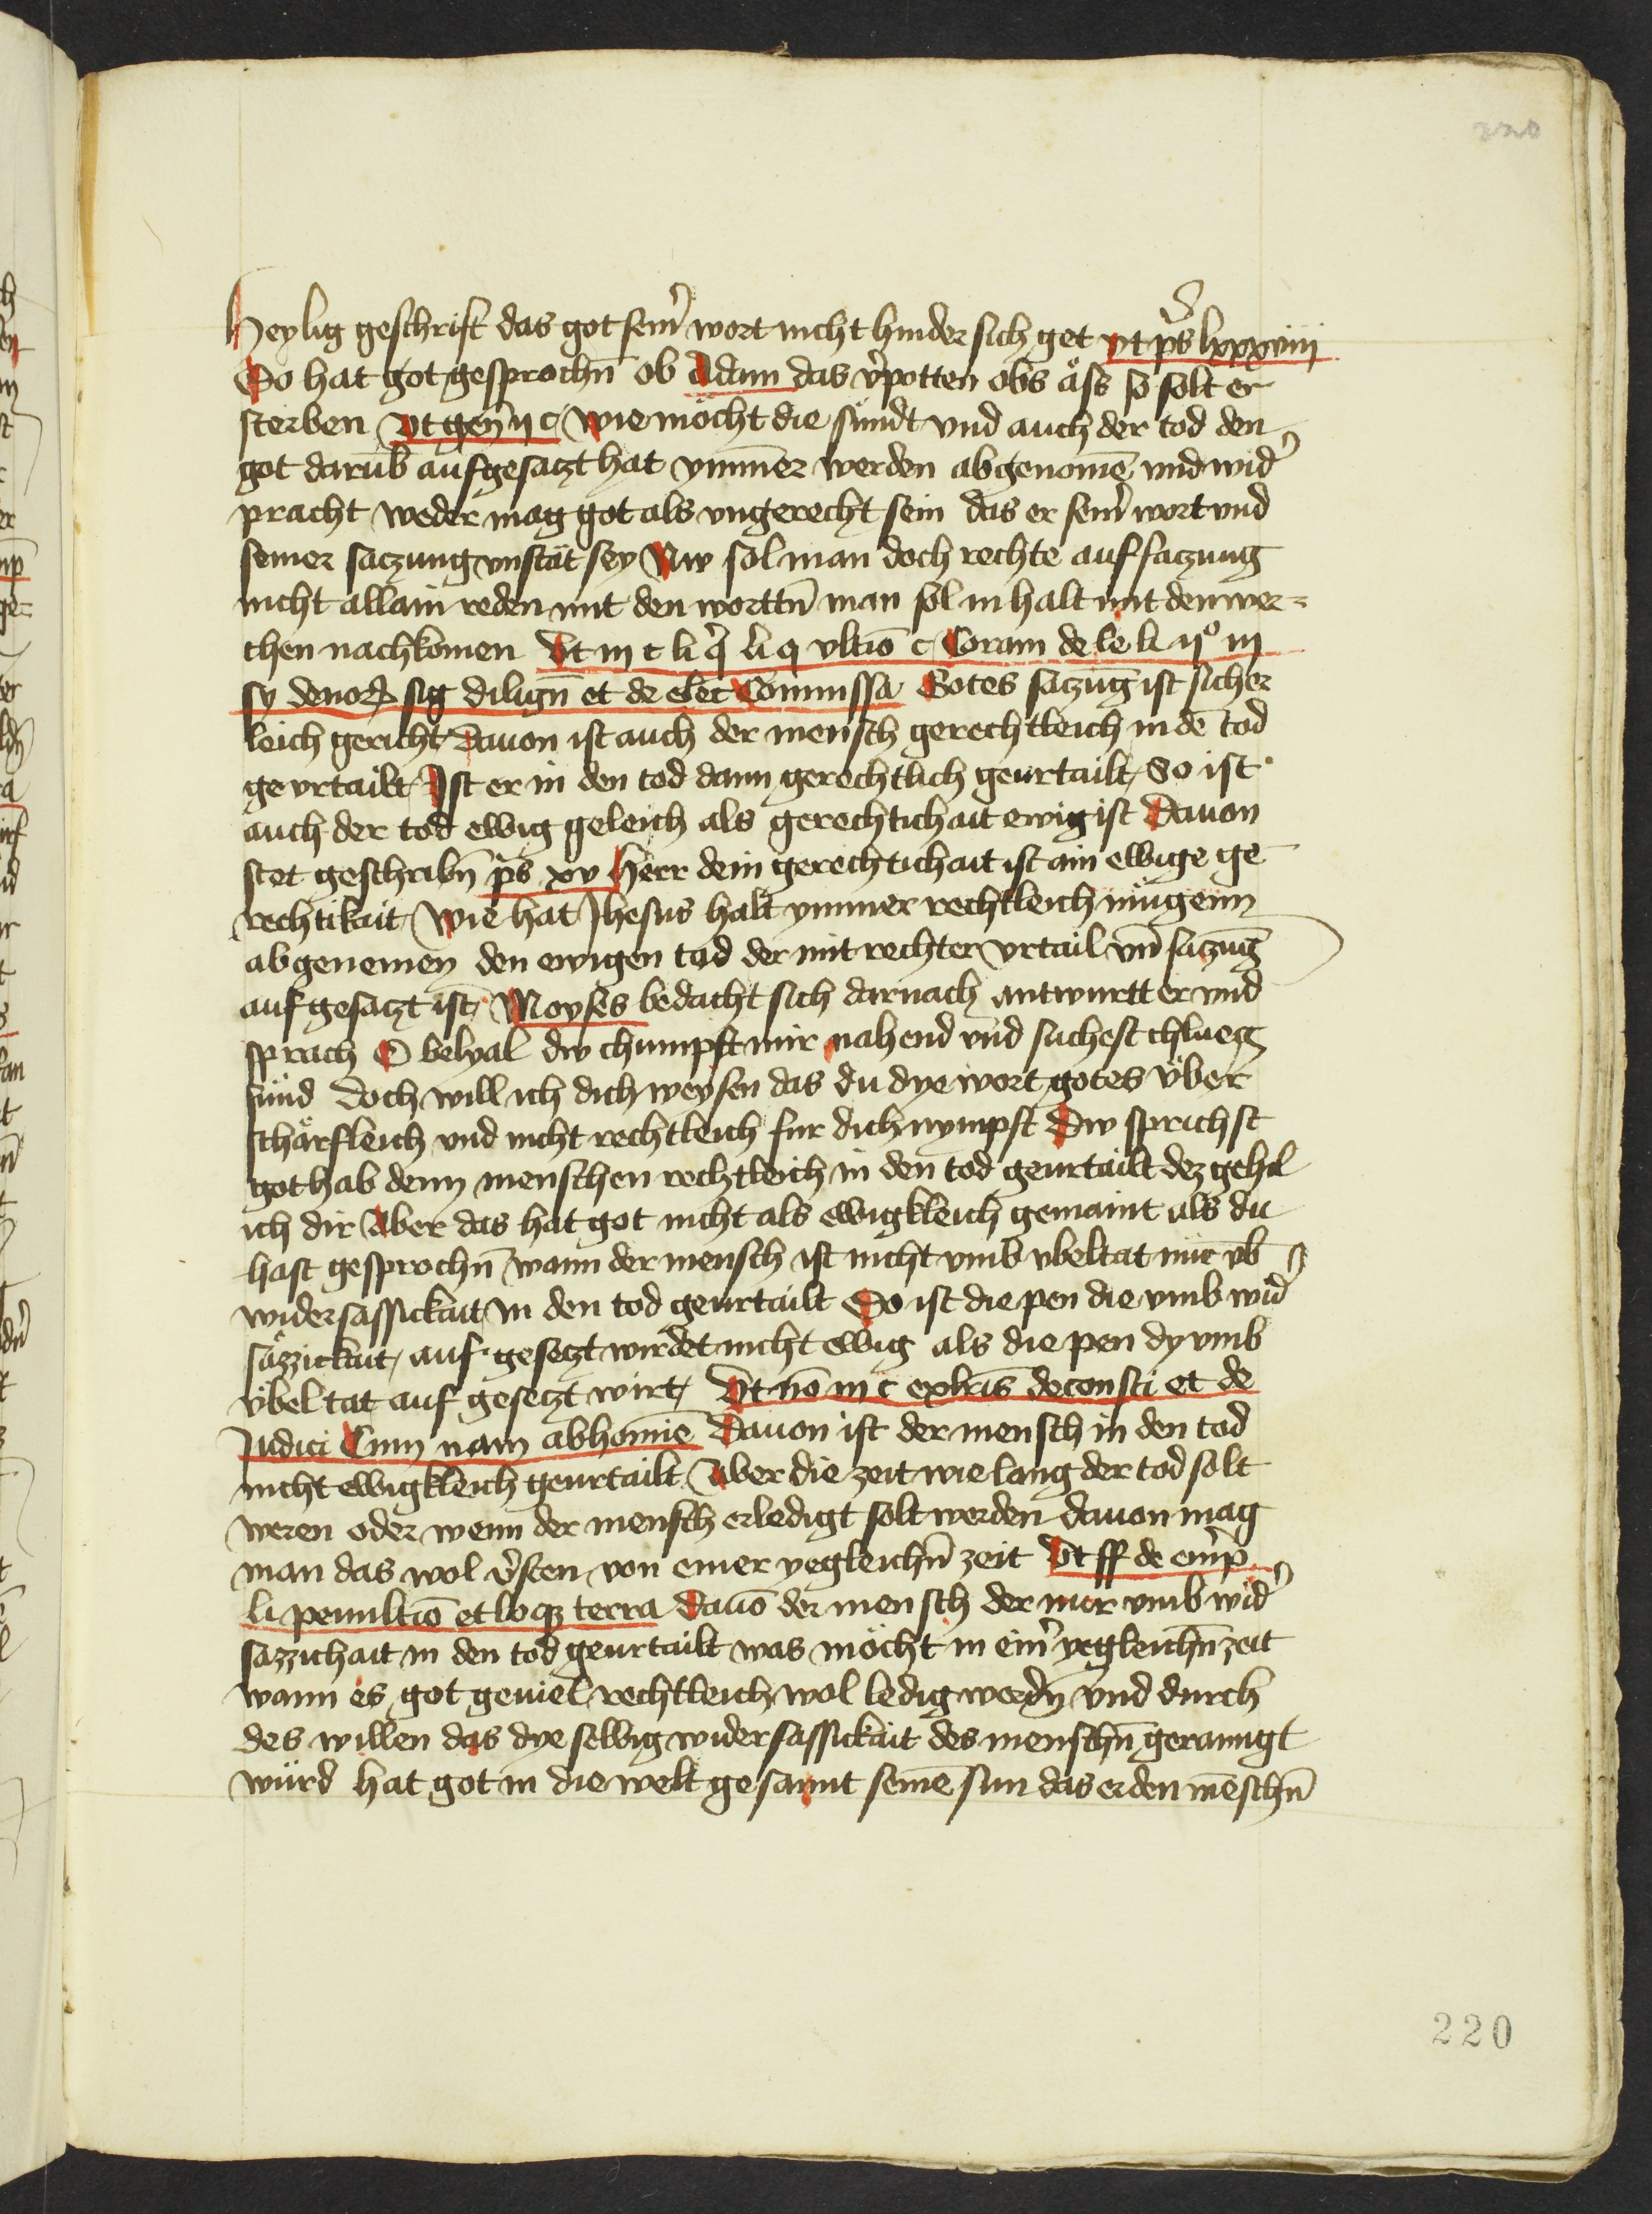 220
Heylig geschrift das got sein̄ wort nicht hinder sich get vt p̄s lxxxviiij
So hat got gesprochn̄ ob Adam das v̓potten obs äss so solt er
sterben Vt gen̄ ij c wie möcht die sündt vnd auch der tod den
got darūb aufgesaczt hat ymmer werden abgenomē vnd wid̓
pracht weder mag got als vngerecht sein das er sein̓ wort vnd
seiner saczung vnstät sey Nw sol man doch rechte auf saczung
nicht allain reden mit den worttn̄ man sol in halt mit den wer=
chen nachkomen Vt in c li q̓ li q vltīo c Coram de le li ij° in
sy de nor sig dilign̄ et de elec Commissa Gotes saczūg ist sicher
leich gericht Dauon ist auch der mensch gerechtleich in dē tod
ge vrtailt Ist er in den tod dann gerechtlich geurtailt So ist
auch der tod ewig geleich als gerechtichait ewig ist Dauon
stet geschribn̄ p̄s xv Herr dein gerechtichait ist ain ewige ge
rechtikait Wie hat Jhesus halt ymmer rechtleich mügenn
abgenemen den ewigen tod der mit rechter vrtail vn̄ saczūg
auf gesaczt ist Moyses bedacht sich darnach antwurtt er vnd
sprach O belyal dw chumpst mir nahend vnd suchest chlueg
fünd doch will ich dich weysen das du dye wort gotes über
schärfleich vnd nicht rechtleich fur dich nympst Dw sprichst
got hab denn menschen rechtleich in den tod geurtailt dez gehil
ich dir Aber das hat got nicht als ewigkleich gemaint als du
hast gesprochn̄ wann der mensch ist nicht vmb vbeltat nur vb̄
widersassickait in den tod geurtailt So ist die pen die vmb wid̓
säzzickait auf gesetzt wirdet nicht ewig als die pen dy vmb
übel tat auf gesetzt wirt Vt nō in c ex lr̄is de consti et de
Judici Cum nam ab homīe Dauon ist der mensch in den tod
nicht ewigkleich geurtailt Aber die zeit wie lang der tod solt
weren oder wenn der mensch erledigt solt werden dauon mag
man das wol v̓sten von einer yegleichn̄ zeit Vt ff de em̓p
li penultīo et loqz terra Dauō der mensch der nur vmb wid̓
sazzichait in den tod geurtailt was möcht in ein̓ yegleichn̄ zeit
wann es got geuiel rechtleich wol ledig werdn̄ vnd durch
des willen das dye selbig widersassickait des menschn̄ geraingt
würd hat got in die welt gesannt seinē sun das er den mēschn̄
220